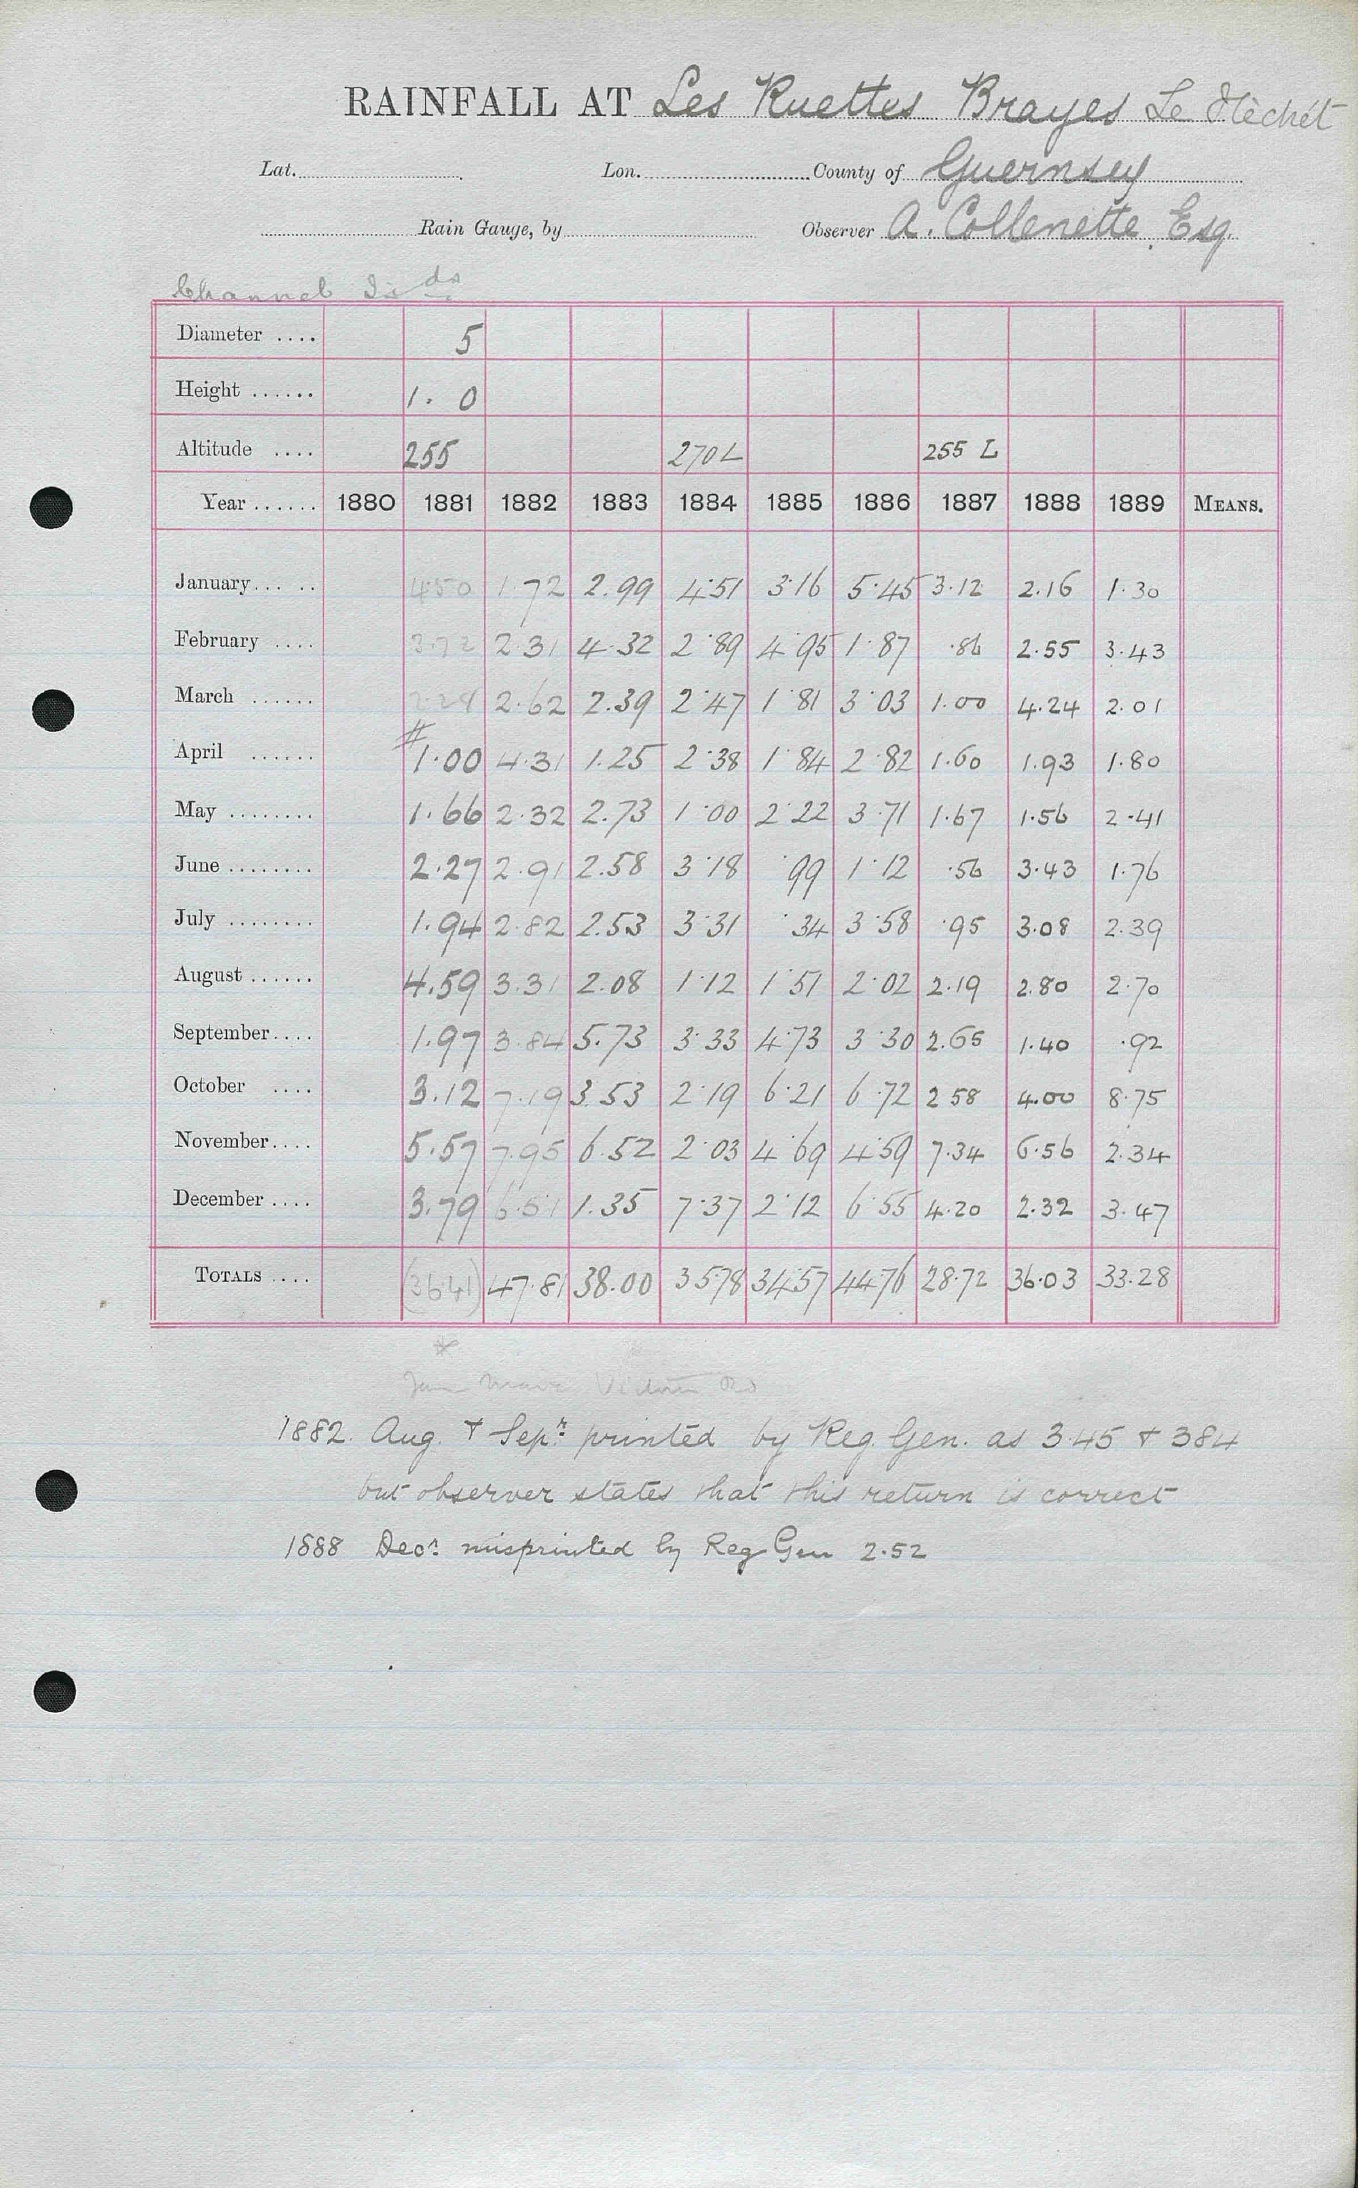 RAINFALL AT Les Ruettes Brayes Le
Lat. Lon. County of Guernsey
Rain Gauge, by Observer A. Collenette Esq.
Channel Isds
Diameter .... 5
Height ...... 1. 0
Altitude .... 255 270 L 255 L
Year ...... 1880 1881 1882 1883 1884 1885 1886 1887 1888 1889 MEANS.
January... .. 4.50 1.72 2.99 4.51 3.16 5.45 3.12 2.16 1.30
February .... 3.72 2.31 4.32 2.89 4.95 1.87 .86 2.55 3.43
March ...... 2.28 2.62 2.39 2.47 1.81 3.03 1.00 4.24 2.01
April ...... # 1.00 4.31 1.25 2.38 1.84 2.82 1.60 1.93 1.80
May ........ 1.66 2.32 2.73 1.00 2.22 3.71 1.67 1.56 2.41
June ........ 2.27 2.91 2.58 3.18 .99 1.12 .56 3.43 1.76
July ........ 1.94 2.82 2.53 3.31 .34 3.58 .95 3.08 2.39
August ...... 4.59 3.31 2.08 1.12 1.51 2.02 2.19 2.80 2.70
September.... 1.97 3.84 5.73 3.33 4.73 3.30 2.65 1.40 .92
October .... 3.12 7.19 3.53 2.19 6.21 6.72 2 58 4.00 8.75
November.... 5.57 7.95 6.52 2.03 4.69 4.59 7.34 6.56 2.34
December .... 3.79 6.51 1.35 7.37 2.12 6.55 4.20 2.32 3.47
TOTALS .... (36.41) 47.81 38.00 35.78 34.57 44.76 28.72 36.03 33.28
*
Victoria Rd
1882. Aug. & Sepr. printed by Reg. Gen. as 3.45 & 384
but observer states that this return is correct
1888 Decr. misprinted by Reg Gen 2.52